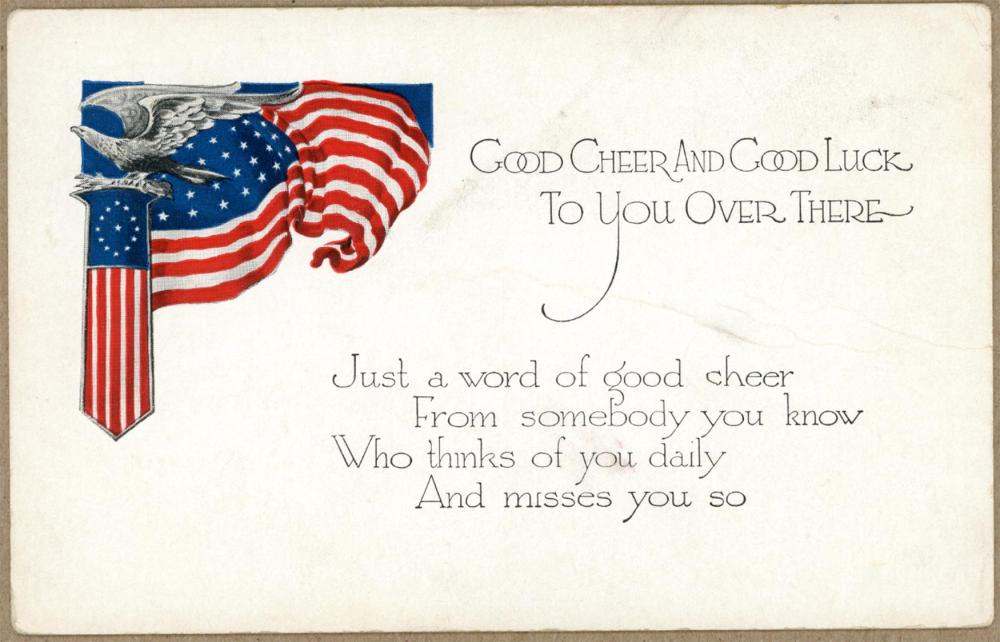 Good Cheer And Good Luck
To You Over There
Just a word of good cheer
From somebody you know
Who thinks of you daily
And misses you so